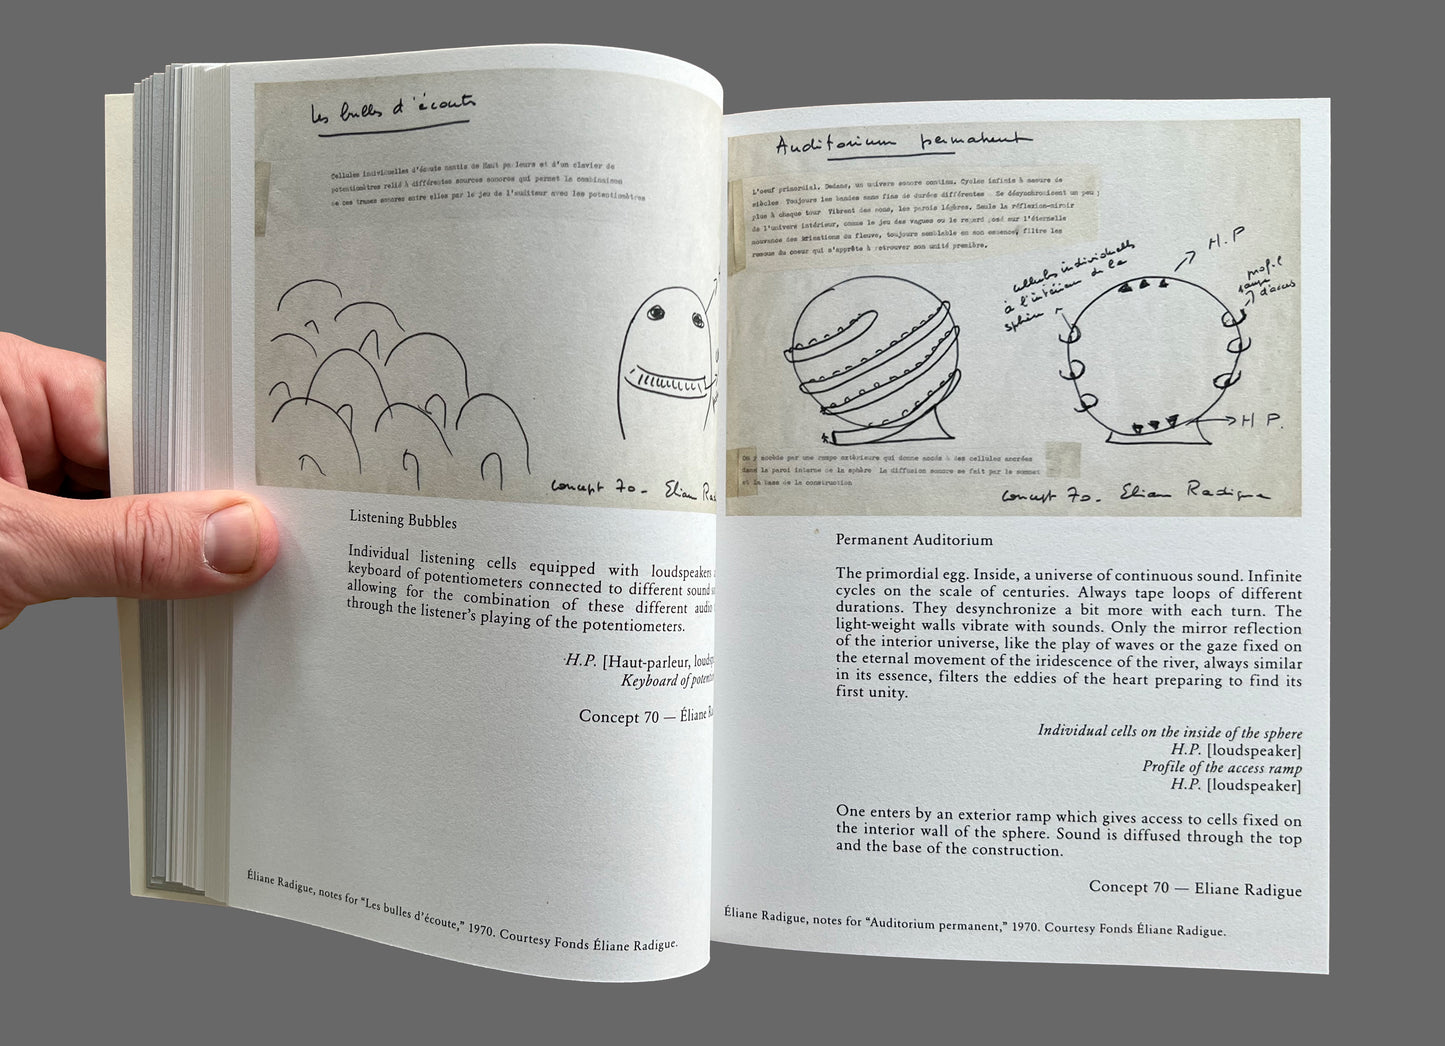 Les bulles d'écoute
Cellules individuelles d'écoute nantis de Haut parleurs et d'un clavier de
potentiomètres relié à différentes sources sonores qui permet la combinaison
de ces trames sonores entre elles par le jeu de l'auditeur avec les potentiomètres
concept 70 - Eliane
Listening Bubbles
Individual listening cells equipped with loudspeakers
keyboard of potentiometers connected to different sound
allowing for the combination of these different audio
through the listener's playing of the potentiometers.
H.P. [Haut-parleur,
Keyboard of
Concept 70 — Éliane
Éliane Radigue, notes for “Les bulles d'écoute,” 1970. Courtesy Fonds Éliane Radigue.
Auditorium permanent
L'oeuf primordial. Dedans, un univers sonore continu. Cycles infinis à mesure de
siècles Toujours les bandes sans fins de durées différentes Se désynchronisent un peu
plus à chaque tour Vibrent des sons, les parois légères. Seule la réflexion-miroir
de l'univers intérieur, comme le jeu des vagues ou le regard posé sur l'éternelle
mouvance des irisations du fleuve, toujours semblable en son essence, filtre les
ressous du coeur qui s'apprête à retrouver son unité première.
cellules individuelles
à l'intérieur de la
sphère
H.P
profil
rampe
d'accès
H P.
On y accède par une rampe extérieure qui donne accès à des cellules ancrées
dans la paroi interne de la sphère La diffusion sonore se fait par le sommet
et la base de la construction
concept 70 - Eliane Radigue
Permanent Auditorium
The primordial egg. Inside, a universe of continuous sound. Infinite
cycles on the scale of centuries. Always tape loops of different
durations. They desynchronize a bit more with each turn. The
light-weight walls vibrate with sounds. Only the mirror reflection
of the interior universe, like the play of waves or the gaze fixed on
the eternal movement of the iridescence of the river, always similar
in its essence, filters the eddies of the heart preparing to find its
first unity.
Individual cells on the inside of the sphere
H.P. [loudspeaker]
Profile of the access ramp
H.P. [loudspeaker]
One enters by an exterior ramp which gives access to cells fixed on
the interior wall of the sphere. Sound is diffused through the top
and the base of the construction.
Concept 70 — Eliane Radigue
Éliane Radigue, notes for “Auditorium permanent,” 1970. Courtesy Fonds Éliane Radigue.